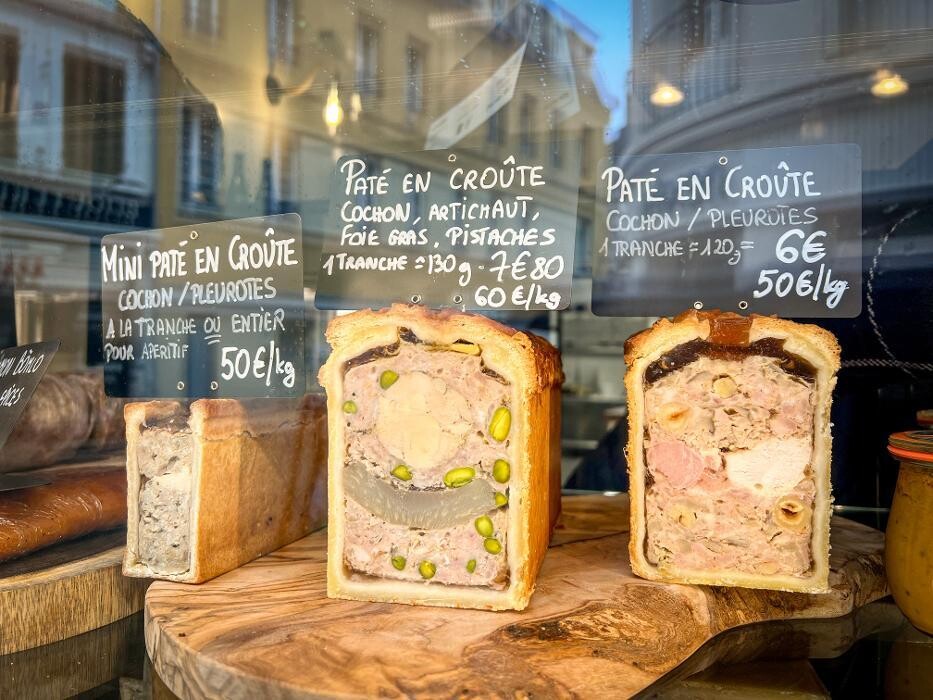 MINI PATÉ EN CROÛTE
COCHON / PLEUROTES
A LA TRANCHE OU ENTIER
POUR APERITIF
50€/kg
PATÉ EN CROÛTE
COCHON, ARTICHAUT,
FOIE GRAS, PISTACHES
1 TRANCHE = 130 g - 7€80
60 €/kg
PATÉ EN CROÛTE
COCHON / PLEUROTES
1 TRANCHE = 120g = 6€
50€/kg